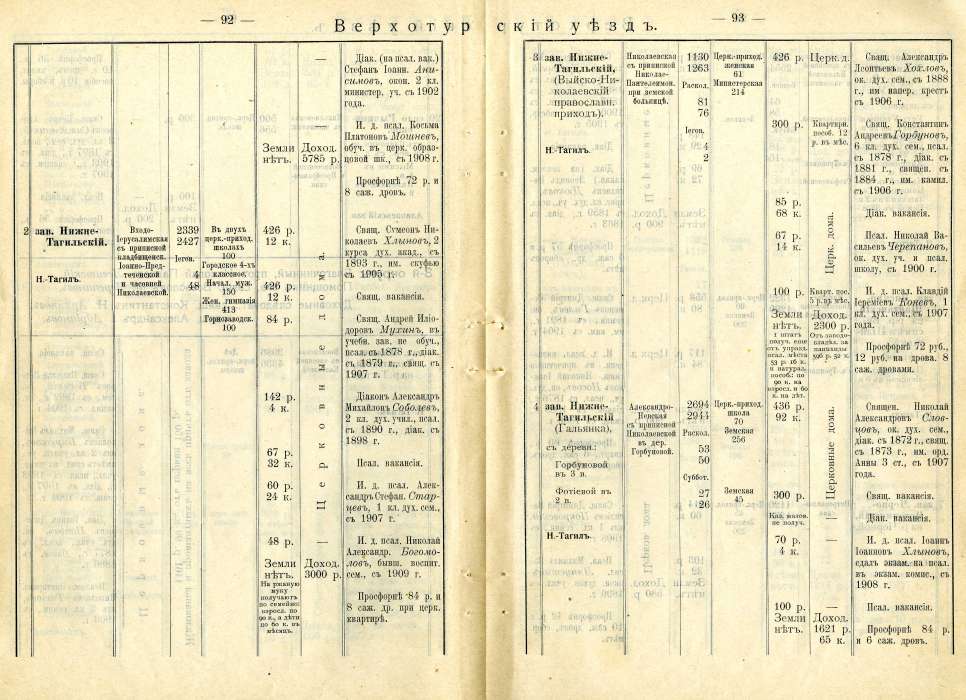 — 92 —
Верхотурскій уѣздъ.
— 93 —
—
Діак. (на псал. вак.)
Стефанъ Іоанн. Ани-
симовъ, окон. 2 кл.
министер. уч. съ 1902
года.
Земли
нѣтъ.
Доход.
5785 р.
—
И. д. псал. Косьма
Платоновъ Мошневъ,
обуч. въ церк. образ-
цовой шк., съ 1908 г.
Просфорнѣ 72 р. и
8 саж. дровъ.
2
зав. Нижне-
Тагильскій.
Н.-Тагилъ.
Входо-
Іерусалимская
съ приписной
кладбищенск.
Іоанно-Пред-
теченской
и часовней
Николаевской.
2339
2427
Іегов.
4
48
Въ двухъ
церк.-приход.
школахъ
100
Городское 4-хъ
классное.
Начал. муж.
150
Жен. гимназія
413
Горнозаводск.
100
426 р.
12 к.
426 р.
12 к.
84 р.
142 р.
4 к.
67 р.
32 к.
60 р.
24 к.
48 р.
Земли
нѣтъ.
На ржаную
муку
получаютъ
по семейн.:
взросл. по
90 к., а дѣти
по 60 к. въ
мѣсяцъ.
Церковные дома.
—
Доход.
3000 р.
Свящ. Сумеонъ Ни-
колаевъ Хлыновъ, 2
курса дух. акад., съ
1893 г. им. скуфью
съ 1905 г.
Свящ. вакансія.
Свящ. Андрей Иліо-
доровъ Мухинъ, въ
учебн. зав. не обуч.,
псал. съ 1878 г., діак.
съ 1879 г., свящ. съ
1907 г.
Діаконъ Александръ
Михайловъ Соболевъ,
2 кл. дух. учил., псал.
съ 1890 г., діак. съ
1898 г.
Псал. вакансія.
И. д. псал. Алек-
сандръ Стефан. Стар-
цевъ, 1 кл. дух. сем.,
съ 1907 г.
И. д. псал. Николай
Александр. Богомо-
ловъ, бывш. воспит.
сем., съ 1909 г.
Просфорнѣ 84 р. и
8 саж. др. при церк.
квартирѣ.
3
зав. Нижне-
Тагильскій,
(Выйско-Ни-
колаевскій
православн.
приходъ).
Н.-Тагилъ.
Николаевская
съ приписной
Николае-
Пантелеимон.
при земской
больницѣ.
1130
1263
Раскол.
81
76
Іегов.
4
2
Церк.-приход.
женская
61
Министерская
214
426 р.
300 р.
85 р.
68 к.
67 р.
14 к.
100 р.
Земли
нѣтъ.
Церк. д.
Квартирн.
пособ. 12
р. въ мѣс.
Церк. дома.
Кварт. пос.
5 р. въ мѣс.
Доход.
2300 р.
Свящ. Александръ
Леонтьевъ Хохловъ,
ок. дух. сем., съ 1888
г., им напер. крестъ
съ 1906 г.
Свящ. Константинъ
Андреевъ Горбуновъ,
6 кл. дух. сем., псал.
съ 1878 г., діак. съ
1881 г., священ. съ
1884 г., им. камил.
съ 1906 г.
Діак. вакансія.
Псал. Николай Ва-
сильевъ Черепановъ,
ок. дух. уч. и псал.
школу, съ 1900 г.
И. д. псал. Клавдій
Іереміевъ Коневъ, 1
кл. дух. сем., съ 1907
года.
Просфорнѣ 72 руб.,
12 руб. на дрова. 8
саж. дровами.
4
зав. Нижне-
Тагильскій
(Гальянка),
съ дерев.:
Горбуновой
въ 3 в.
Фотіевой въ
2 в.
Н.-Тагилъ.
Александро-
Невская
съ приписной
Николаевской
въ дер.
Горбуновой.
2694
2944
Раскол.
53
50
Суббот.
27
26
Церк.-приход.
школа
70
Земская
256
Земская
45
436 р.
92 к.
300 р.
Каз. жалов.
не получ.
70 р.
4 к.
100 р.
Земли
нѣтъ.
Церковные дома.
—
—
—
Доход.
1621 р.
65 к.
Священ. Николай
Александровъ Слов-
цовъ, ок. дух. сем.,
діак. съ 1872 г., свящ.
съ 1873 г., им. орд.
Анны 3 ст., съ 1907
года.
Свящ. вакансія.
Діак. вакансія.
И. д. псал. Іоаннъ
Іоанновъ Хлыновъ,
сдалъ экзам. на псал.
въ экзам. комис., съ
1908 г.
Псал. вакансія.
Просфорнѣ 84 р.
и 6 саж. дров.